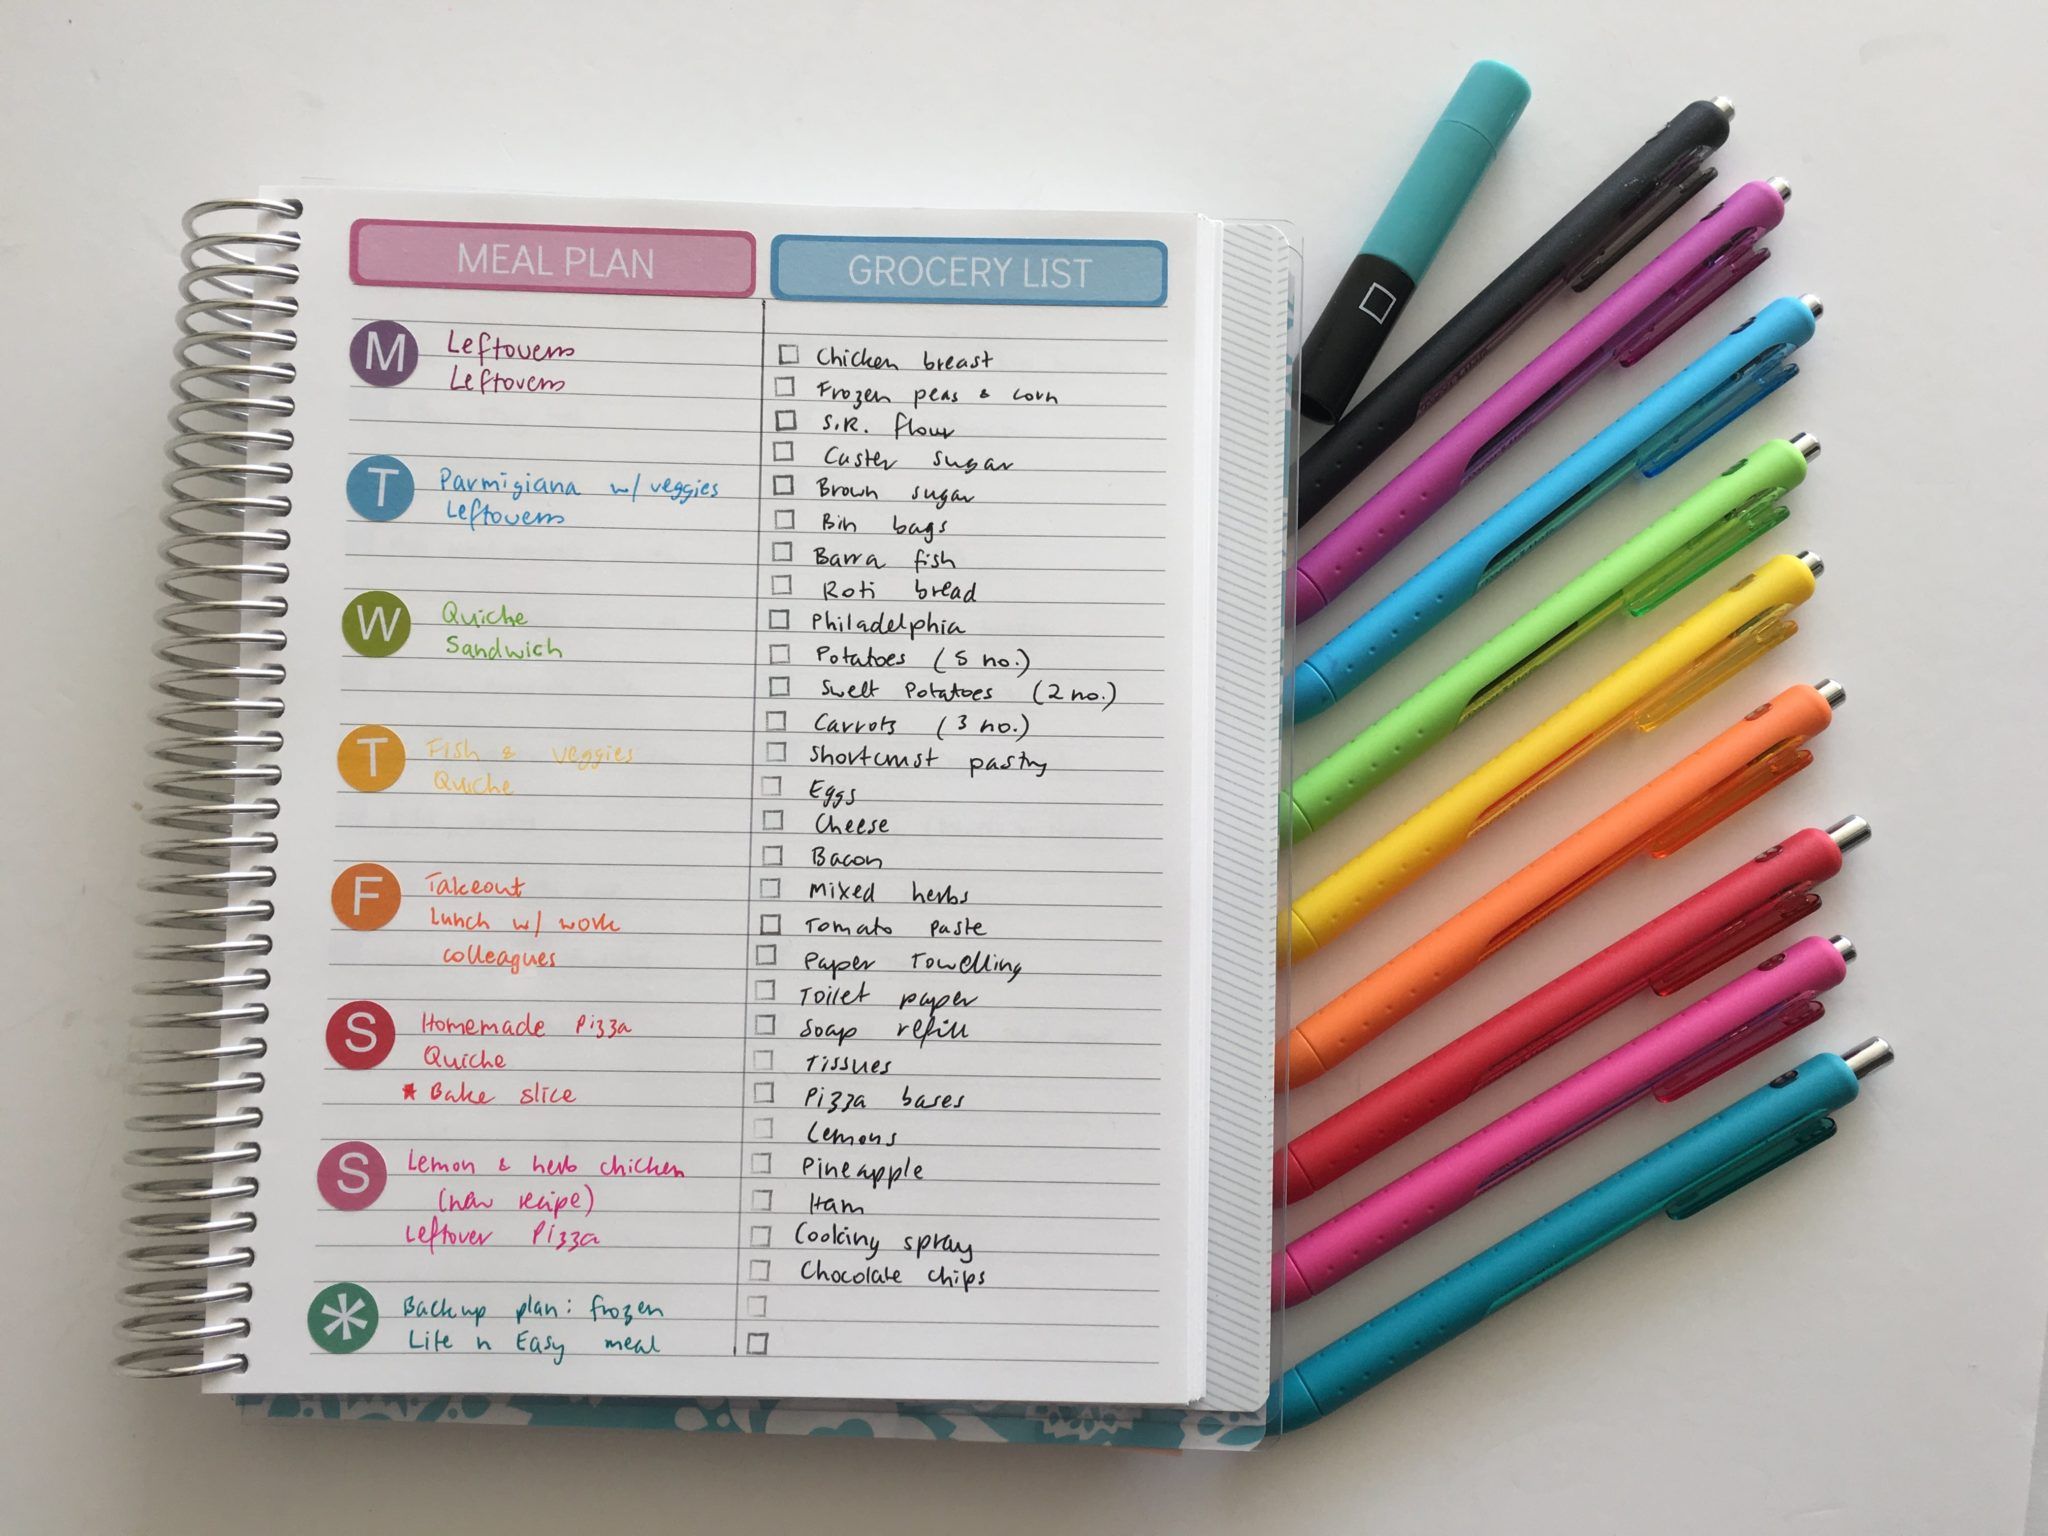 MEAL PLAN
M
Leftovers
Leftovers
T
Parmigiana w/ veggies
Leftovers
W
Quiche
Sandwich
T
Fish & veggies
Quiche
F
Takeout
Lunch w/ work
colleagues
S
Homemade Pizza
Quiche
* Bake slice
S
Lemon & herb chicken
(new recipe)
Leftover Pizza
*
Backup plan: frozen
Lite n Easy meal
GROCERY LIST
Chicken breast
Frozen peas & corn
S.R. flour
Caster sugar
Brown sugar
Bin bags
Barra fish
Roti bread
Philadelphia
Potatoes (5 no.)
Sweet Potatoes (2 no.)
Carrots (3 no.)
Shortcrust pastry
Eggs
Cheese
Bacon
Mixed herbs
Tomato paste
Paper Towelling
Toilet paper
Soap refill
Tissues
Pizza bases
Lemons
Pineapple
Ham
Cooking spray
Chocolate chips